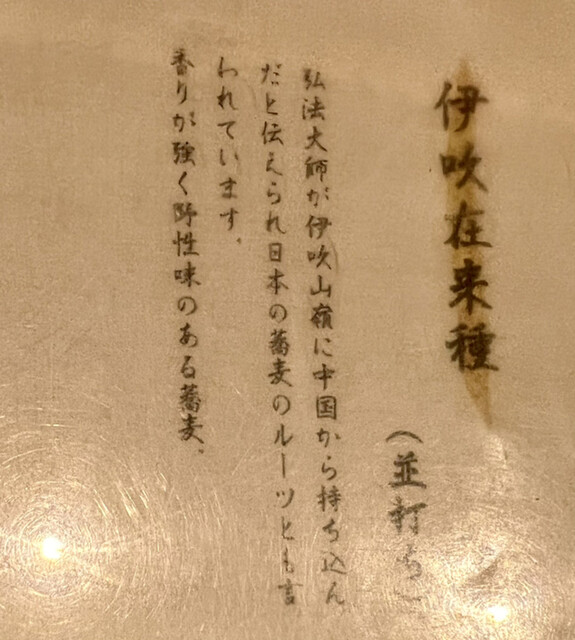 伊吹在来種
（並打ち）
弘法大師が伊吹山嶺に中国から持ち込ん
だと伝えられ日本の蕎麦のルーツとも言
われています。
香りが強く野性味のある蕎麦。